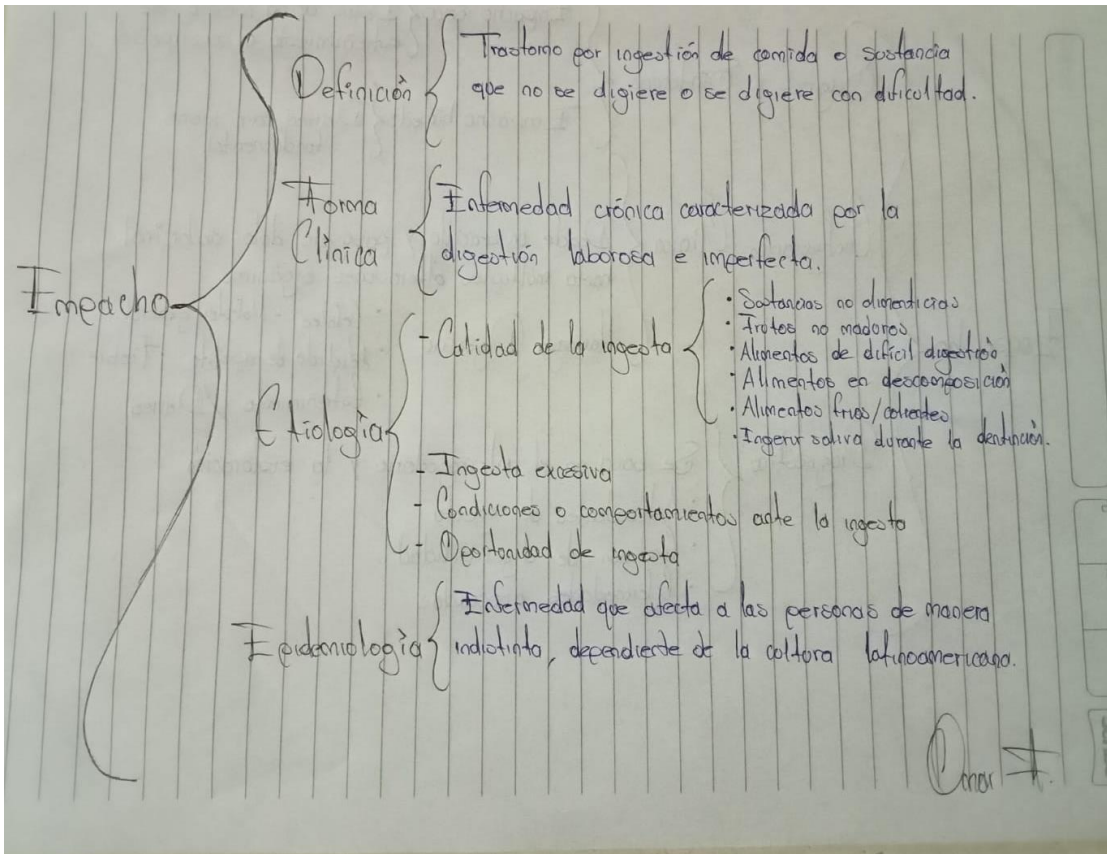 Empacho
Definición
Trastorno por ingestión de comida o sustancia
que no se digiere o se digiere con dificultad.
Forma
Clínica
Enfermedad crónica caracterizada por la
digestión laborosa e imperfecta.
Etiología
- Calidad de la ingesta
· Sustancias no alimenticias
· Frutos no maduros
· Alimentos de difícil digestión
· Alimentos en descomposición
· Alimentos frios/calientes
· Ingerir saliva durante la dentición.
- Ingesta excesiva
- Condiciones o comportamientos ante la ingesta
- Oportunidad de ingesta
Epidemiología
Enfermedad que afecta a las personas de manera
indistinta, dependiente de la cultura latinoamericana.
Omar F.